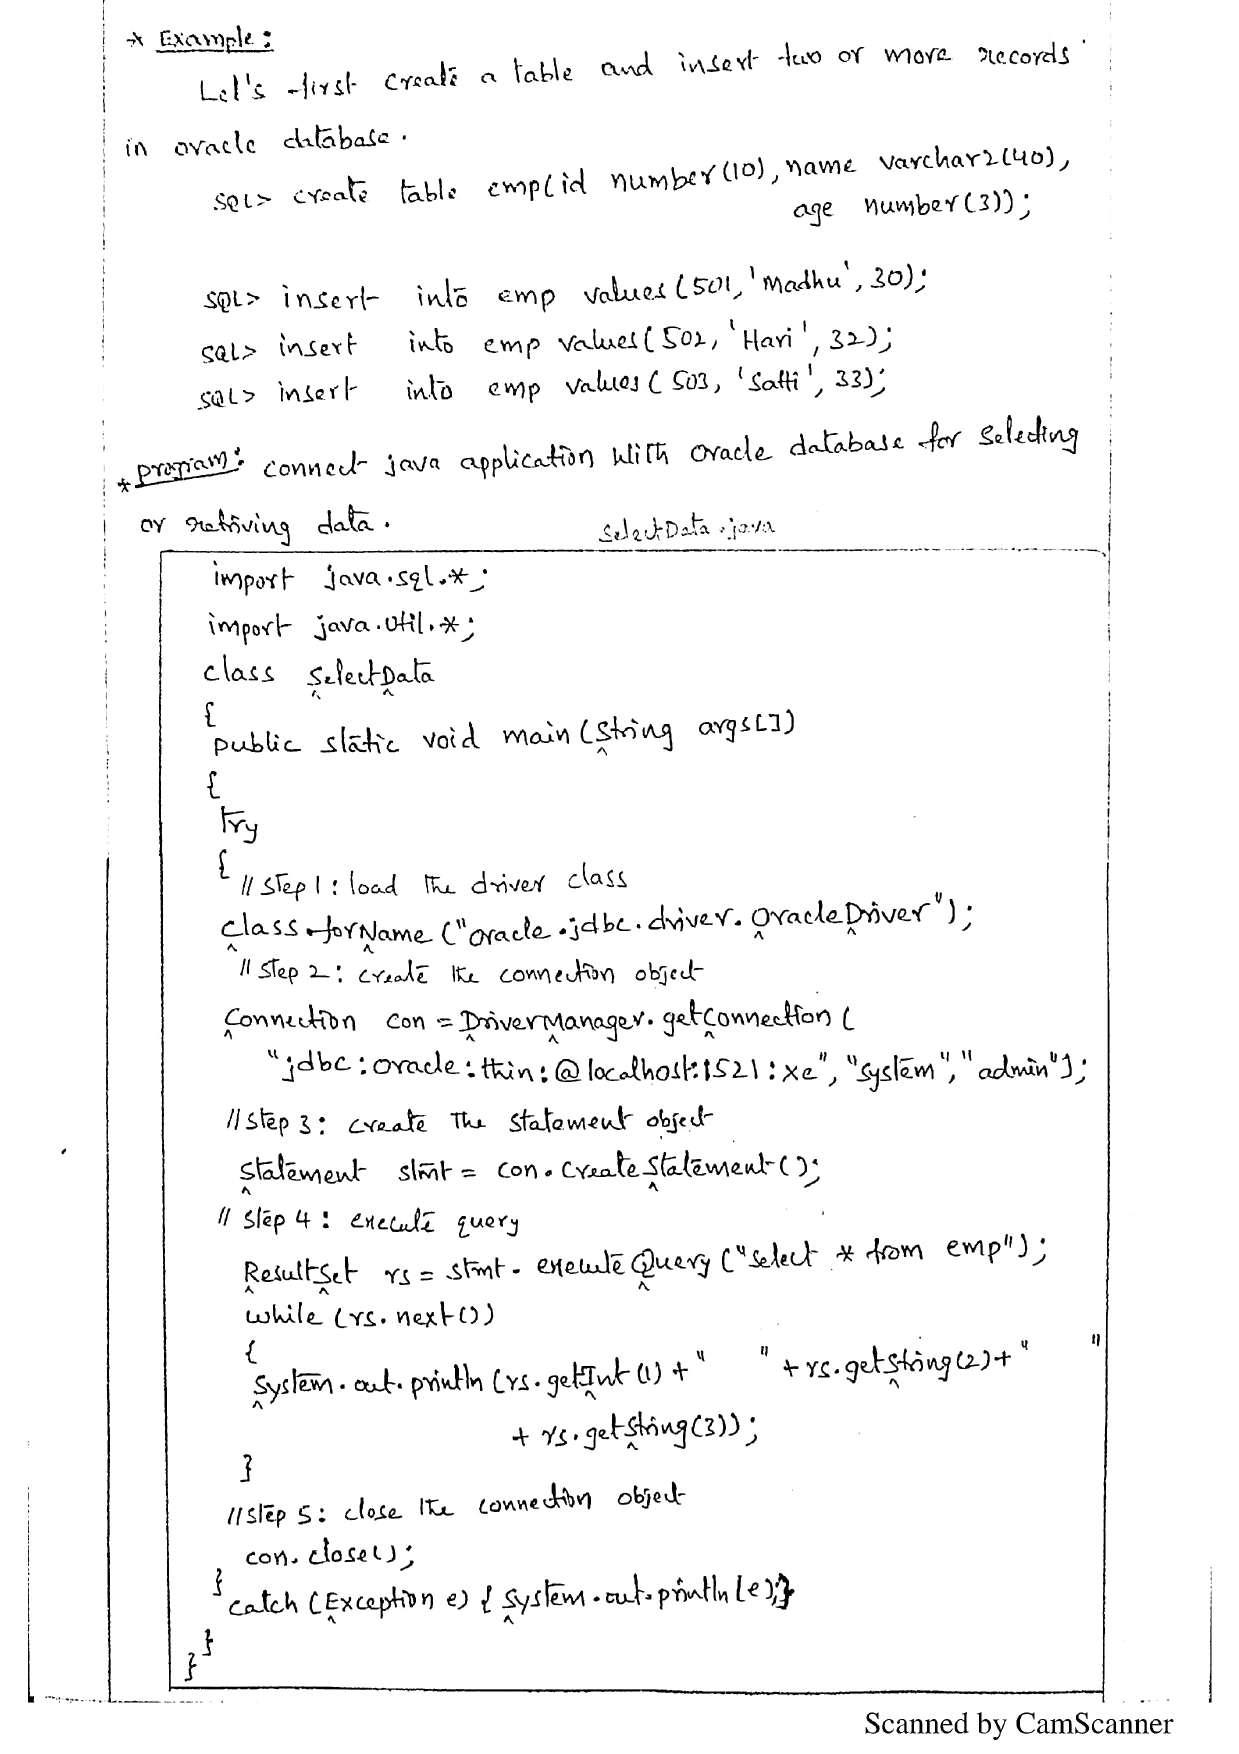 * Example:
Let's first create a table and insert two or more records
in oracle database.
SQL> create table emp(id number(10), name varchar2(40),
age number(3));
SQL> insert into emp values(501, 'Madhu', 30);
SQL> insert into emp values(502, 'Hari', 32);
SQL> insert into emp values(503, 'Satti', 33);
* program: connect java application with oracle database for selecting
or retriving data.
SelectData.java
import java.sql.*;
import java.util.*;
class SelectData
{
public static void main(String args[])
{
try
{
//step1: load the driver class
Class.forName("oracle.jdbc.driver.OracleDriver");
//step 2: create the connection object
Connection con = DriverManager.getConnection(
"jdbc:oracle:thin:@localhost:1521:xe", "system", "admin");
//step 3: create the statement object
Statement stmt = con.createStatement();
//step 4: execute query
ResultSet rs = stmt.executeQuery("select * from emp");
while (rs.next())
{
System.out.println(rs.getInt(1)+" "+rs.getString(2)+" "
+ rs.getString(3));
}
//step 5: close the connection object
con.close();
}
catch (Exception e) { System.out.println(e);}
}
}
Scanned by CamScanner